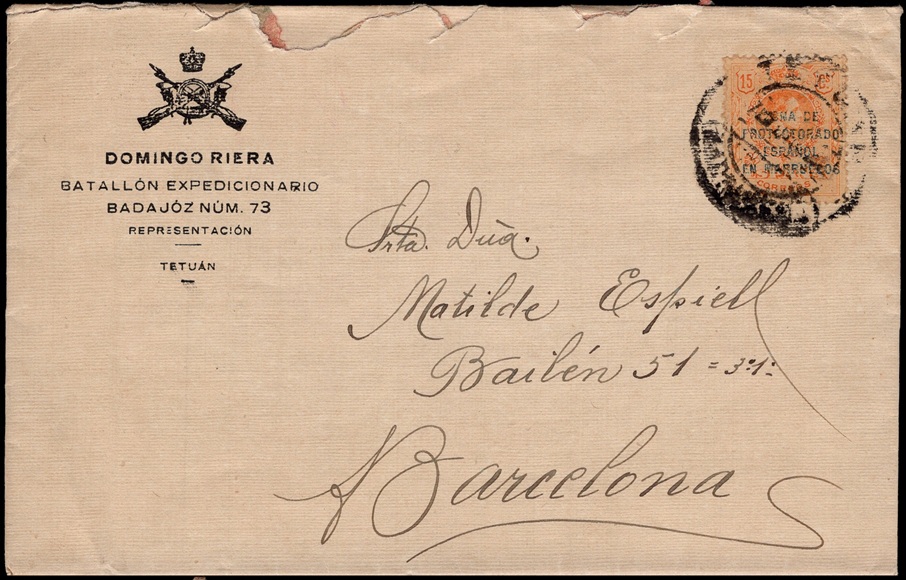 DOMINGO RIERA
BATALLÓN EXPEDICIONARIO
BADAJÓZ NÚM. 73
REPRESENTACIÓN
TETUÁN
15 Cs
ZONA DE
PROTECTORADO
ESPAÑOL
EN MARRUECOS
CORREOS
Srta. Dña.
Matilde Espiell
Bailén 51 = 3º 1ª
Barcelona